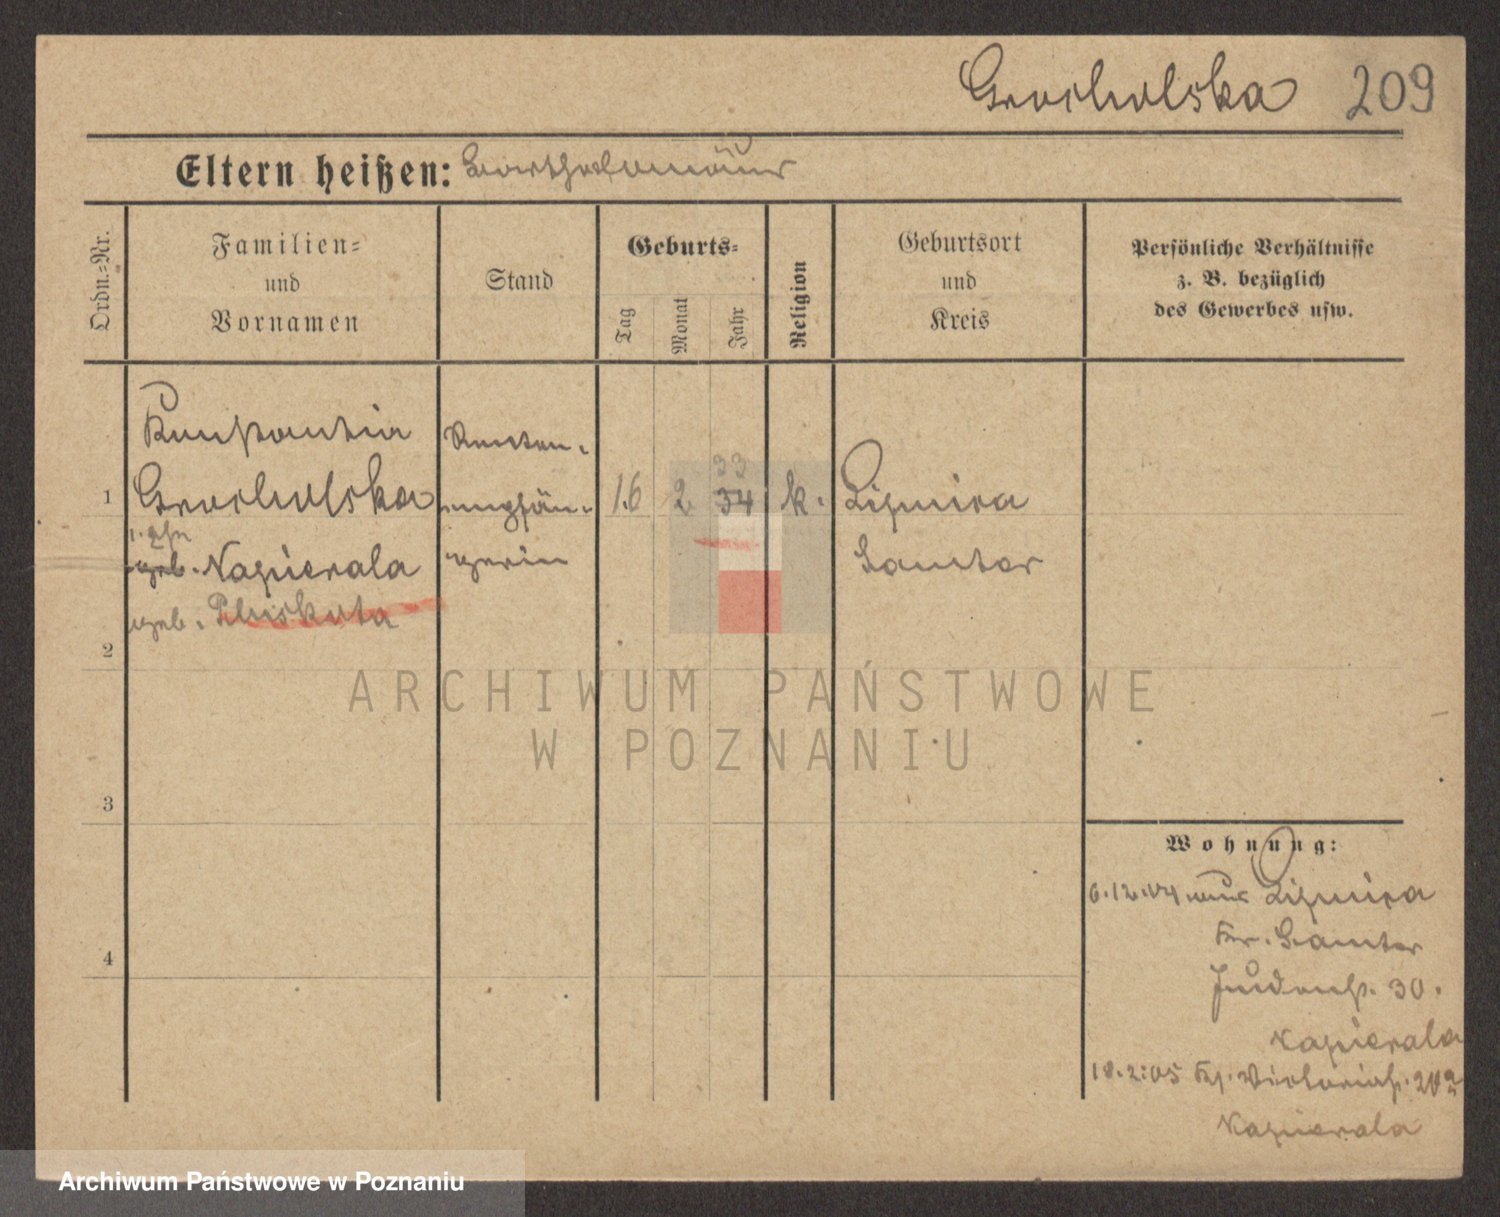 Grocholska 209
Eltern heißen: Bartholomäus
Ordn.=Nr.
Familien=
und
Vornamen
Stand
Geburts=
Tag
Monat
Jahr
Religion
Geburtsort
und
Kreis
Persönliche Verhältnisse
z. B. bezüglich
des Gewerbes usw.
1
Konstantia
Grocholska
geb. Napierala
geb. Pluskota
Renten-
empfän-
gerin
16 2 34
33
k.
Samter
2
3
4
Wohnung:
6.12.04
Kr. Samter
Judenstr. 30.
Napierala
18.2.05 Victoriastr.
Napierala
ARCHIWUM PAŃSTWOWE
W POZNANIU
Archiwum Państwowe w Poznaniu